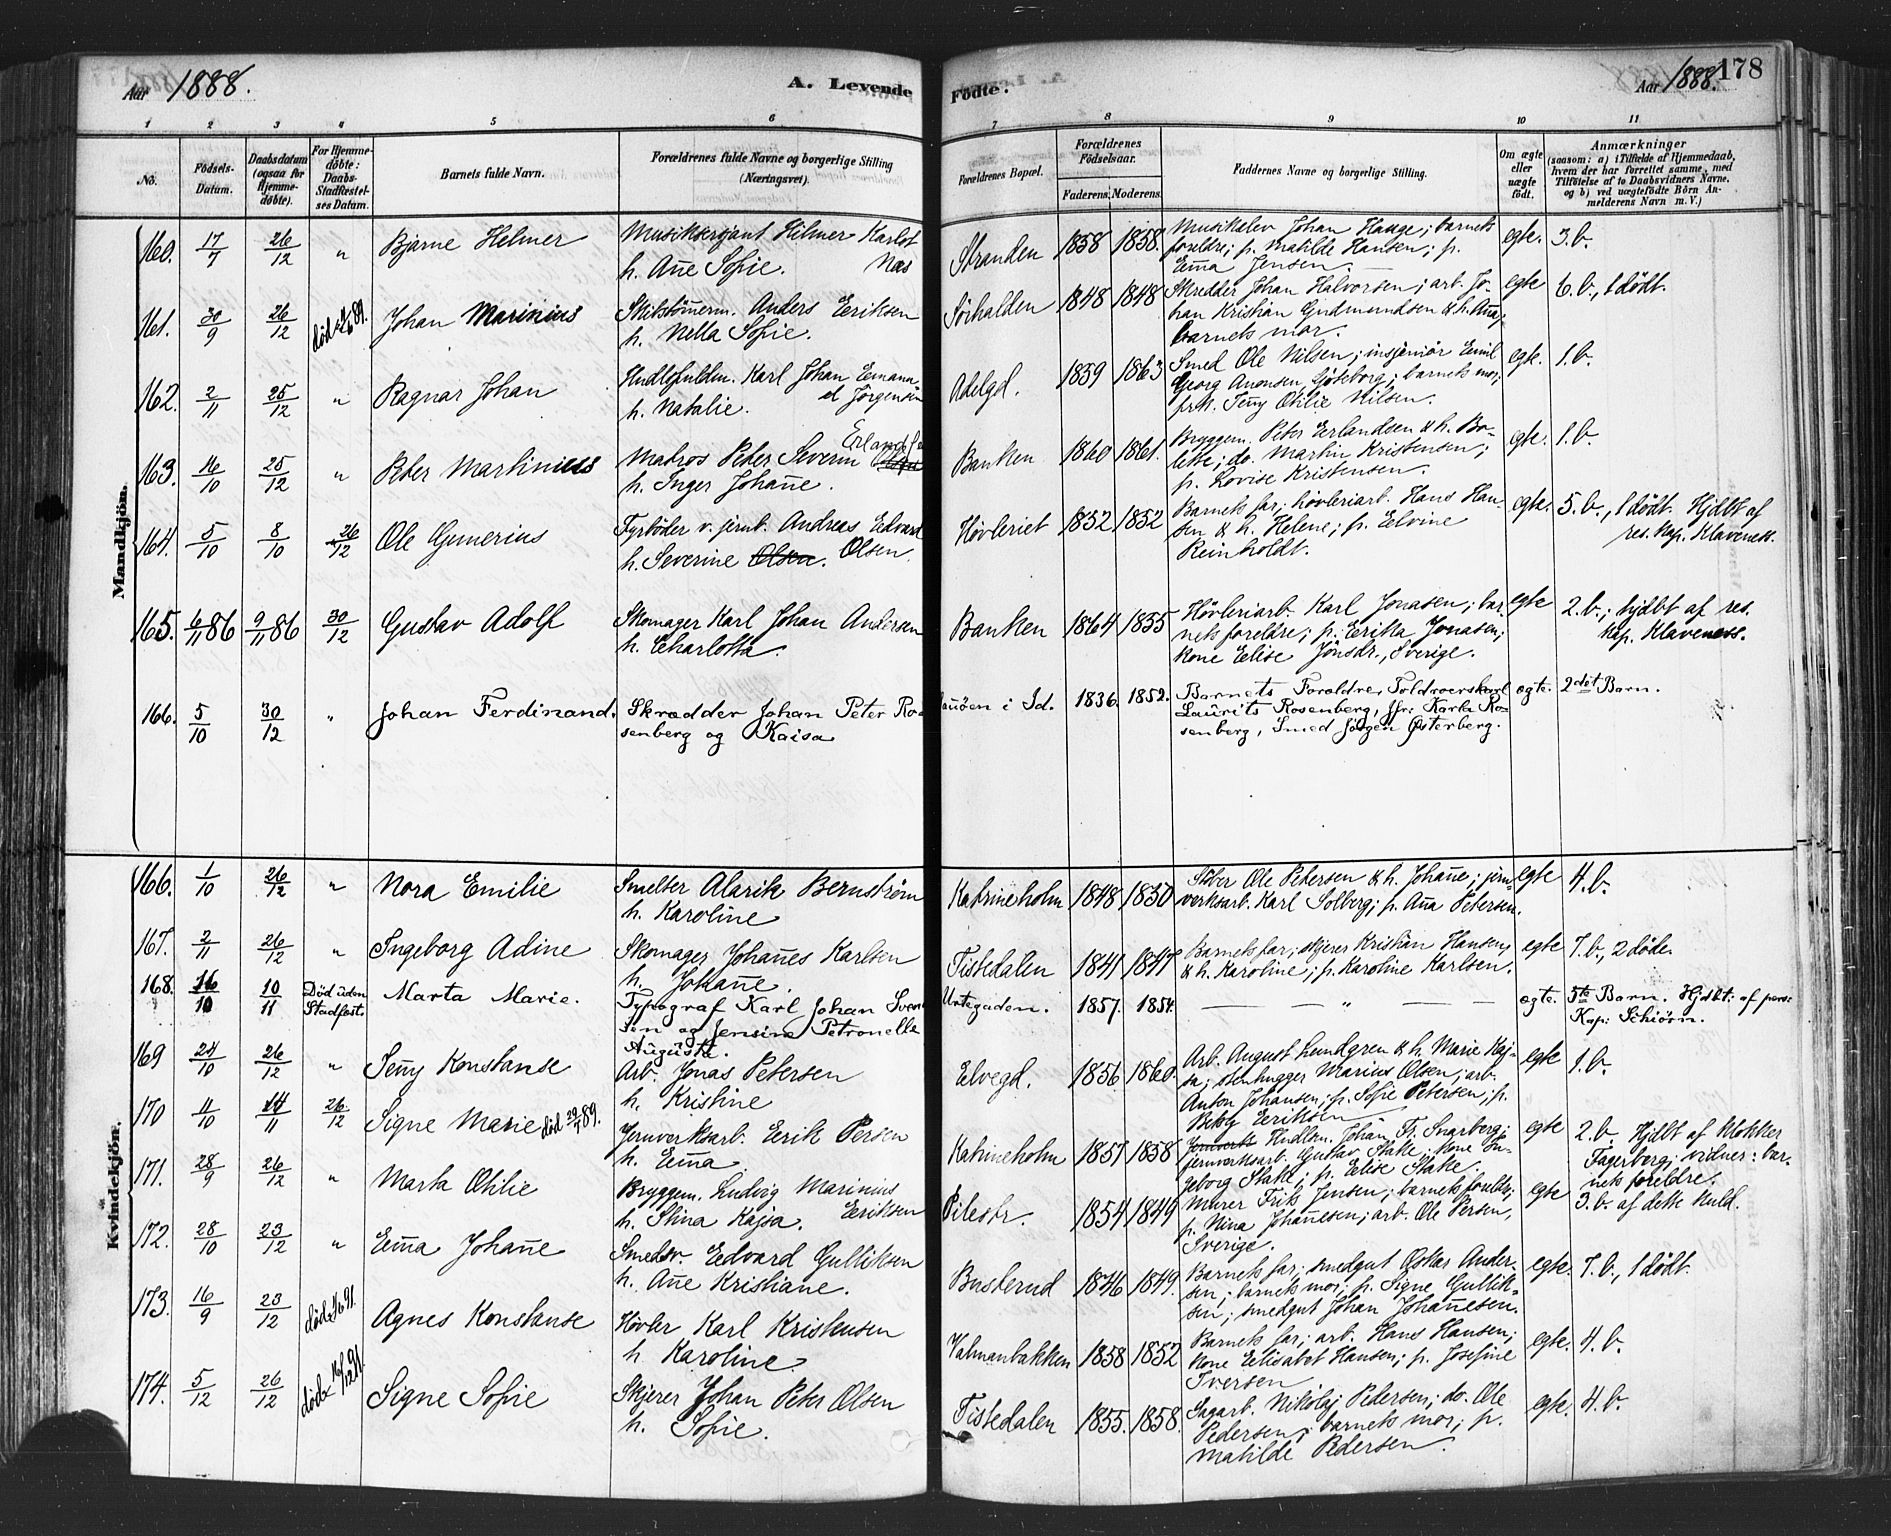 Aar 1888. A. Levende Fødte. Aar 1888. 178
1 2 3 4 5 6 7 8 9 10 11
No.
Fødsels-Datum.
Daabsdatum (ogsaa for Hjemmedøbte).
For Hjemmedøbte: Daabs-Stadfæstelses Datum.
Barnets fulde Navn.
Forældrenes fulde Navne og borgerlige Stilling (Næringsvei).
Forældrenes Bopæl.
Forældrenes Fødselsaar.
Faderens. Moderens.
Faddernes Navne og borgerlige Stilling.
Om ægte eller uægte født.
Anmærkninger
(saasom: a) i Tilfælde af Hjemmedaab, hvem der har forrettet samme, med Tilføielse af to Daabsvidners Navne, og b) ved uægtefødte Børn Anmelderens Navn m. V.)
Mandkjön.
160. 17/7 26/12 " Bjarne Helmer
Musiksersjant Hilmer Karlot Næs
h. Ane Sofie.
Stranden 1858 1858.
Musikelev Johan Hauge; barnets
foreldre; p. Matilde Hansen; p.
Emma Jensen.
egte. 3. b.
161. 30/9 26/12 Johan Marinius
Skibstömerm. Anders Eriksen
h. Nella Sofie.
Sörhalden 1848 1848
Skredder Johan Halvorsen; arb. Jo-
han Kristian Gudmundsen & h. Ana;
barnets mor.
egte 6. b., 1 dödt.
162. 2/11 25/12 " Ragnar Johan
Karl Johan Emanu-
el Jörgensen
h. Natalie.
Adelgd. 1839 1863
Smed Ole Nilsen; insjeniör Emil
Georg Göteborg; barnets mor;
frk. Jeny Otilie Nilsen.
egte. 1. b.
163. 16/10 25/12 " Peter Martinius
Matros Peter Severin Erlandsen
h. Inger Johane.
Banken 1860 1861.
Bryggem. Peter Erlandsen & h. Bo-
lette; do. Martin Kristensen;
p. Lovise Kristensen.
egte. 1. b.
164. 5/10 8/10 26/12 Ole Gunerius
Fyrböder v. jernb. Andreas Edvard
h. Severine Olsen. Olsen.
Hövleriet 1852 1852
Barnets far; hövleriarb. Hans Han-
sen & h. Helene; p. Elvine
Reinholdt.
egte. 5. b., 1 dödt. Hjdbt af
res. kap. Klaveness.
165. 6/11 86 9/11 86 30/12 Gustav Adolf
Skomager Karl Johan Andersen
h. Charlotta.
Banken 1864 1855
Hövleriarb. Karl Jonasen; bar-
nets foreldre; p. Erika Jonasen;
kone Elise Jönsdr., Sverige.
egte 2. b.; hjdbt af res.
kap. Klaveness.
166. 5/10 30/12 " Johan Ferdinand.
Skrædder Johan Peter Ro-
senberg og Kaisa
i Id. 1836. 1852.
Barnets Forældre, Toldroerskarl
Laurits Rosenberg, Jfr: Karla Ro-
senberg, Smed Jörgen Østerberg.
ægte. 2det Barn.
Kvindekjön.
166. 1/10 26/12 " Nora Emilie
Smelter Alarik Bernström
h. Karoline
Katrineholm 1848 1850
Stöber Ole Petersen & h. Johane; jern-
verksarb. Karl Solberg; p. Ana Petersen.
egte 4. b.
167. 2/11 26/12 " Ingeborg Adine
Skomager Johanes Karlsen
h. Johane.
Tistedalen 1841 1847
Barnets far; skjerer Kristian Hansen
& h. Karoline; p. Karoline Karlsen.
egte 7. b., 2 döde.
168. 16/10 10/11 Död uden Stadfæst. Marta Marie.
Typograf Karl Johan Svend-
sen og Jensine Petronelle
Augusta.
Urtegaden. 1857. 1854.
— " — —
ægte. 5te Barn. Hjdbt: af pers:
Kap: Schiörn.
169 24/10 26/12 " Jeny Konstanse
Arb. Jonas Petersen
h. Kristine
Elvegd. 1856 1860.
Arb. August Lundgren & h. Marie Kaj-
sa; stenhugger Marius Olsen; arb.
Anton Johansen; p. Sofie Petersen; p.
Betsy Eriksen.
egte 1. b.
170 11/10 14/11 26/12 Signe Marie död 29/1 89.
Jernverksarb. Erik Persen
h. Ema
Katrineholm 1857 1858
Jernverks Hndlsm. Johan Fr. Snarberg;
jernverksarb. Gustav Stake; kone In-
geborg Stake; p. Elise Stake.
egte 2. b. Hjdbt af klokker
Fagerberg; vidner: bar-
nets foreldre.
171. 28/9 26/12 " Marta Otilie
Bryggem. Ludvig Marinius
h. Stina Kajsa. Eriksen
Pilestr. 1854 1849
Murer Frits Jensen; barnets foreldre;
p. Nina Johannesen; arb. Ole Persen,
Sverige.
egte 3. b. af dette kuld.
172. 28/10 23/12 " Ema Johane
Smedsv. Edvard Gulliksen
h. Ane Kristiane.
Busterud 1846 1849.
Barnets far; smedgut Oskar Ander-
sen; barnets mor; p. Signe Gullik-
sen; smedgut Johan Johanesen.
egte. 7. b., 1 dödt.
173. 16/9 23/12 Agnes Konstanse
Hövler Karl Kristensen
h. Karoline.
Valmanbakken 1858 1852
Barnets far; arb. Hans Hansen;
kone Elisabet Hansen; p. Josefine
Iversen
egte. 4. b.
174. 5/12 26/12 Signe Sofie
Skjerer Johan Peter Olsen
h. Sofie.
Tistedalen 1855. 1858.
Sagarb. Nikolaj Pedersen; do. Ole
Pedersen; barnets mor; p.
Matilde Pedersen.
egte. 4. b.